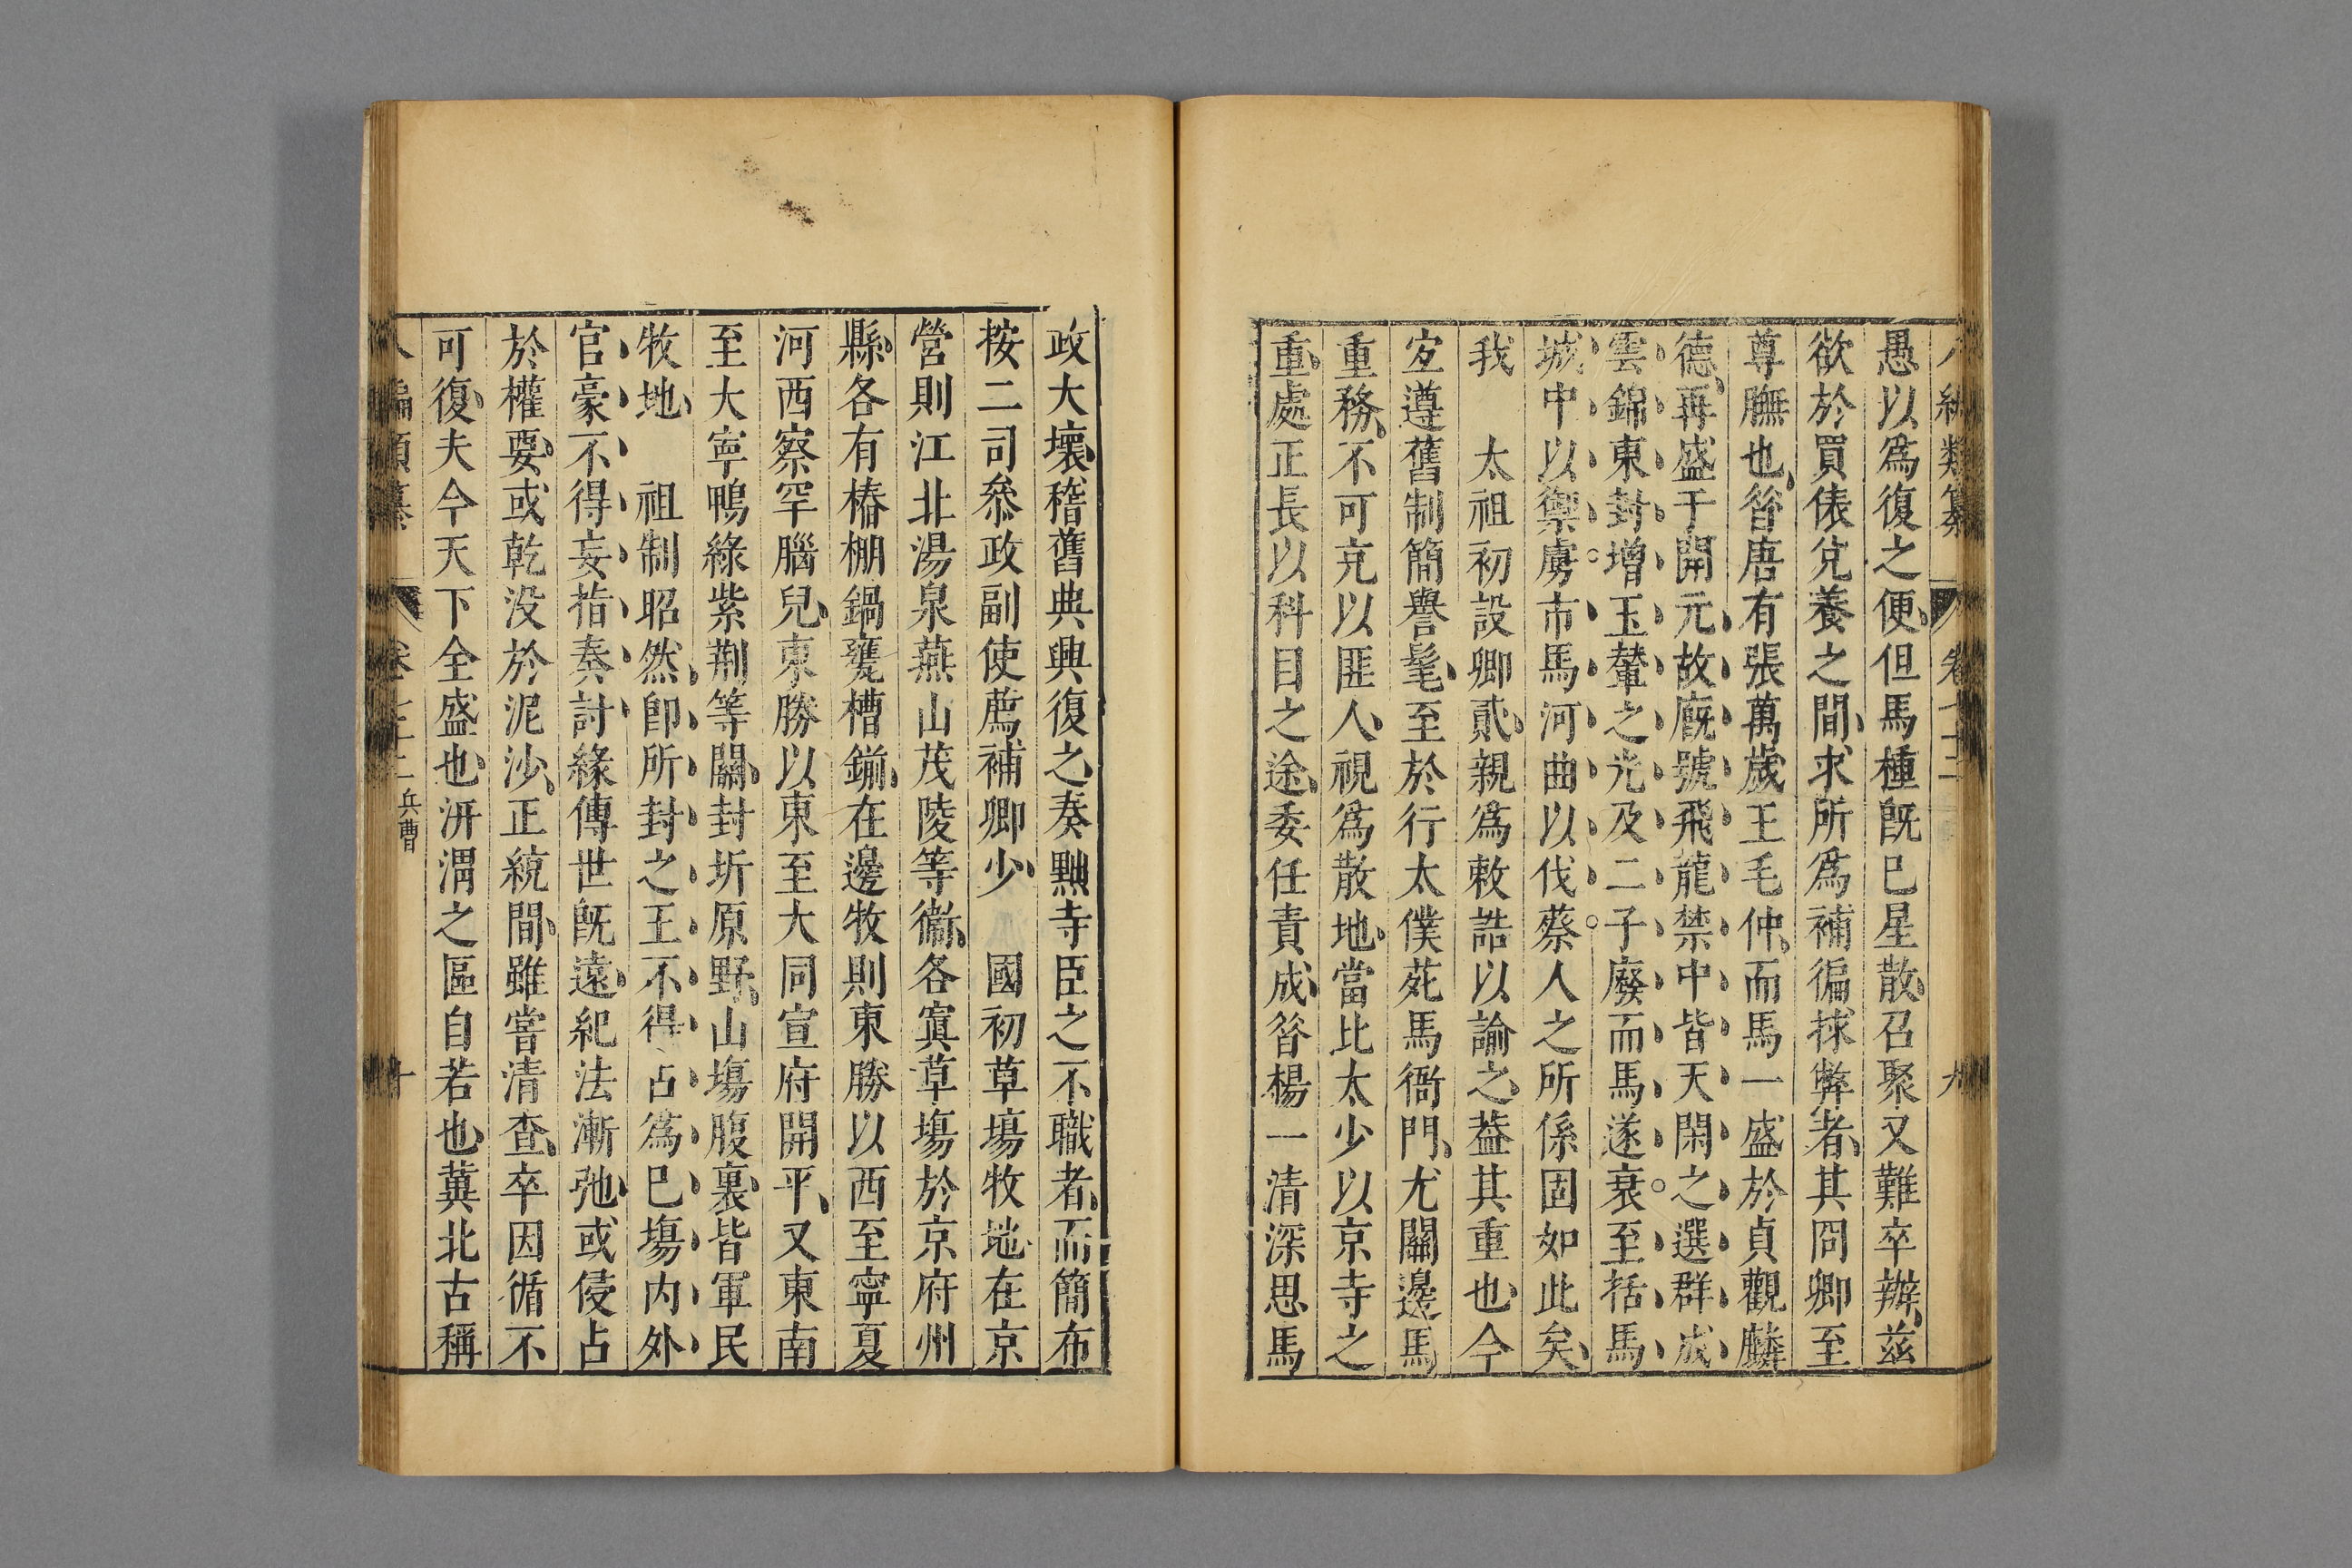 愚以爲復之便但馬種旣已星散召聚又難卒辦茲
欲於買俵兌養之間求所爲補徧捄弊者其冏卿至
尊膴也昝唐有張萬歲王毛仲而馬一盛於貞觀麟
德再盛于開元故廐號飛龍禁中皆天閑之選群成
雲錦東封增玉輦之光及二子廢而馬遂衰至括馬
城中以禦虜市馬河曲以伐蔡人之所係固如此矣
我　太祖初設卿貳親爲敕誥以諭之葢其重也今
宐遵舊制簡譽髦至於行太僕苑馬衙門尤關邊馬
重務不可充以匪人視爲散地當比太少以京寺之
重處正長以科目之途委任責成昝楊一清深思馬
政大壞稽舊典興復之奏黜寺臣之不職者而簡布
按二司叅政副使薦補卿少　國初草塲牧地在京
營則江北湯泉燕山茂陵等衞各寘草塲於京府州
縣各有樁棚鍋甕槽鍘在邊牧則東勝以西至寧夏
河西察罕腦兒東勝以東至大同宣府開平又東南
至大寧鴨綠紫荆等關封圻原野山塲腹裏皆軍民
牧地　祖制昭然卽所封之王不得占爲巳塲内外
官豪不得妄指奏討緣傳世旣遠紀法漸弛或侵占
於權要或乾没於泥沙正統間雖嘗清查卒因循不
可復夫今天下全盛也汧渭之區自若也冀北古稱
兵曹